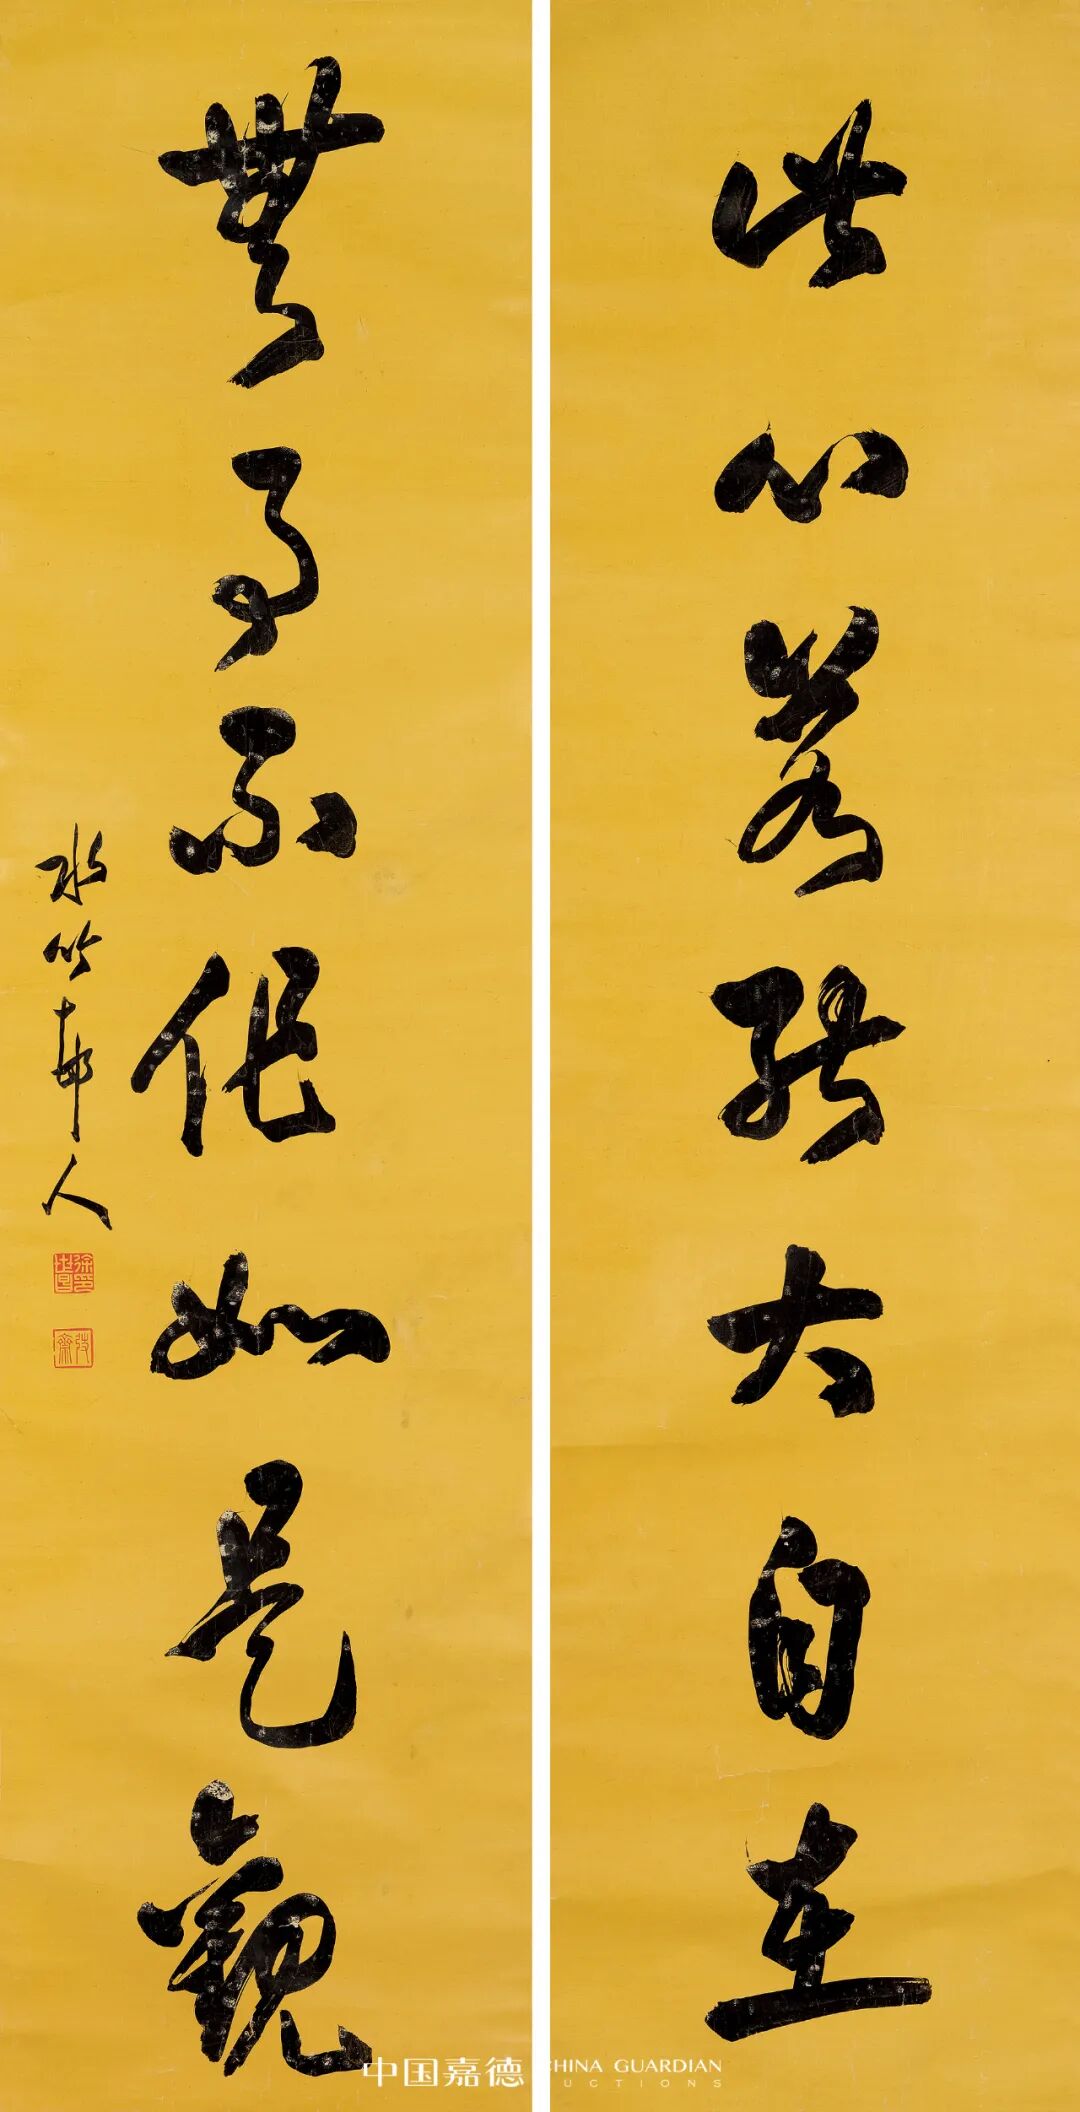 此心若能大自在
無事不作如是觀
水竹邨人
徐印世昌
弢齋
中国嘉德 CHINA GUARDIAN
AUCTIONS